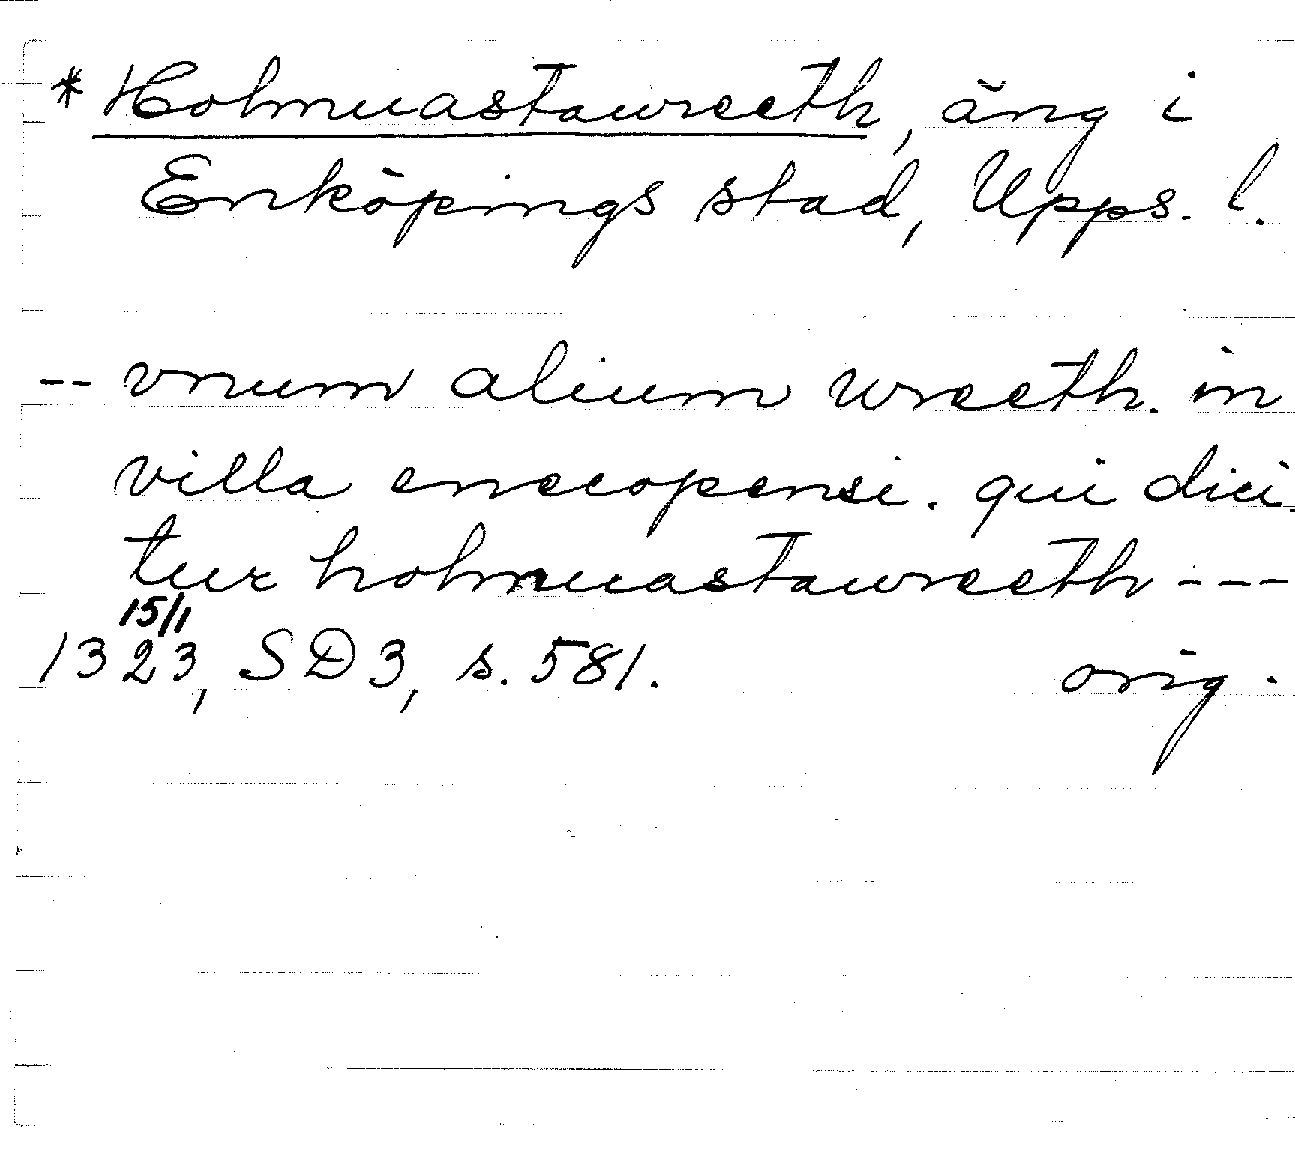 * Holmuastawreeth, äng i
Enköpings stad, Upps. l.
-- vnum alium wreeth. in
villa enecopensi. qui dici
tur holmuastawreeth ---
15/1
1323, SD3, s. 581. orig.